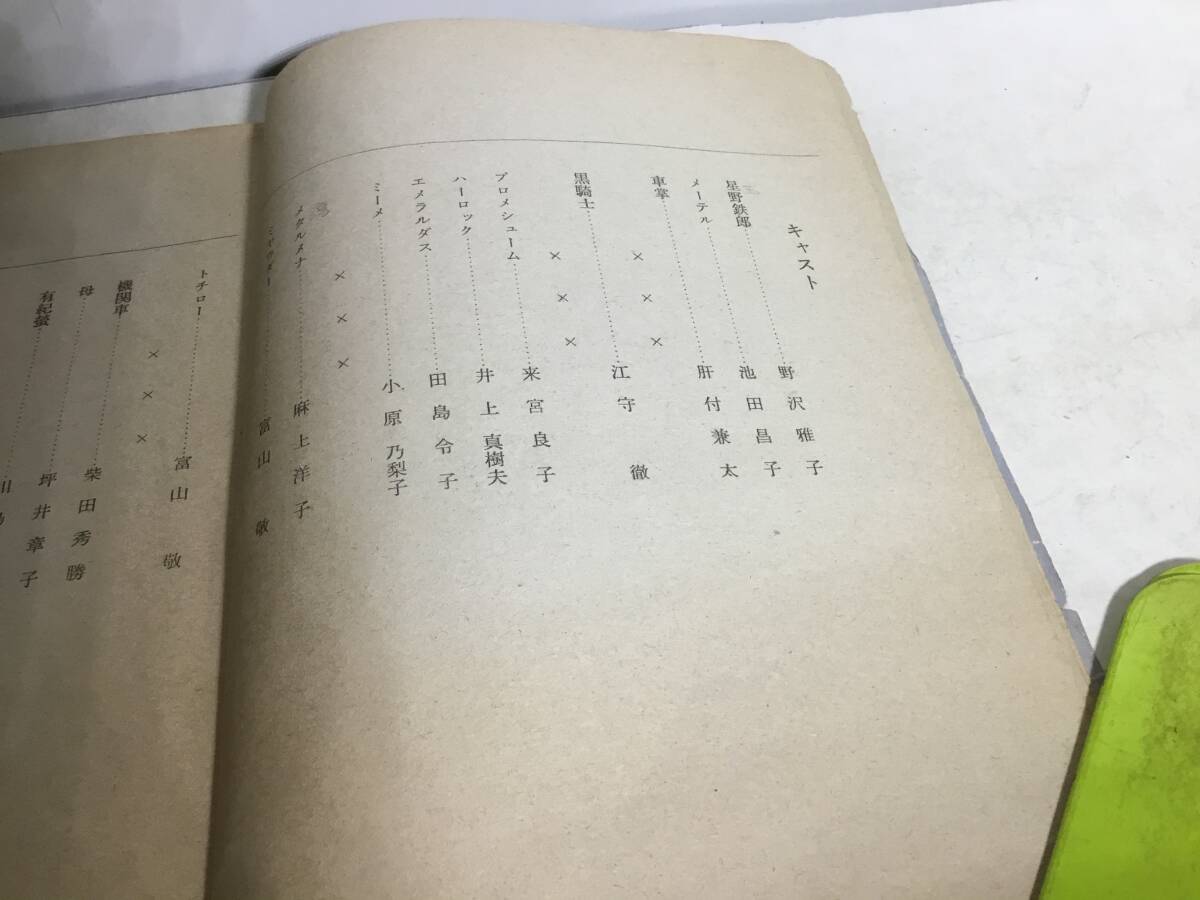 キャスト
星野鉄郎……………野沢雅子
メーテル……………池田昌子
車掌……………肝付兼太
× × ×
黒騎士……………江守徹
× × ×
プロメシューム……………来宮良子
ハーロック……………井上真樹夫
エメラルダス……………田島令子
ミーメ……………小原乃梨子
× × ×
メタルメナ……………麻上洋子
ミャウダー……………富山敬
トチロー……………富山敬
× × ×
機関車……………柴田秀勝
母……………坪井章子
有紀螢……………川島